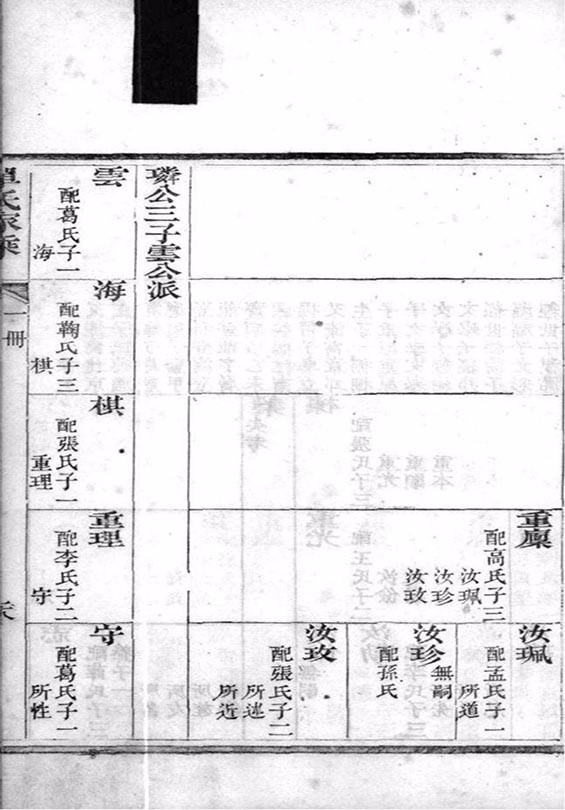 重廩
配高氏子三
汝珮
汝珍
汝玫
汝珮
配孟氏子一
所道
汝珍
無嗣
配孫氏
汝玫
配張氏子二
所述
所近
璘公三子雲公派
雲
配葛氏子一
海
海
配鞠氏子三
棋
棋
配張氏子一
重理
重理
配李氏子二
守
守
配葛氏子一
所性
單氏家乘
一冊